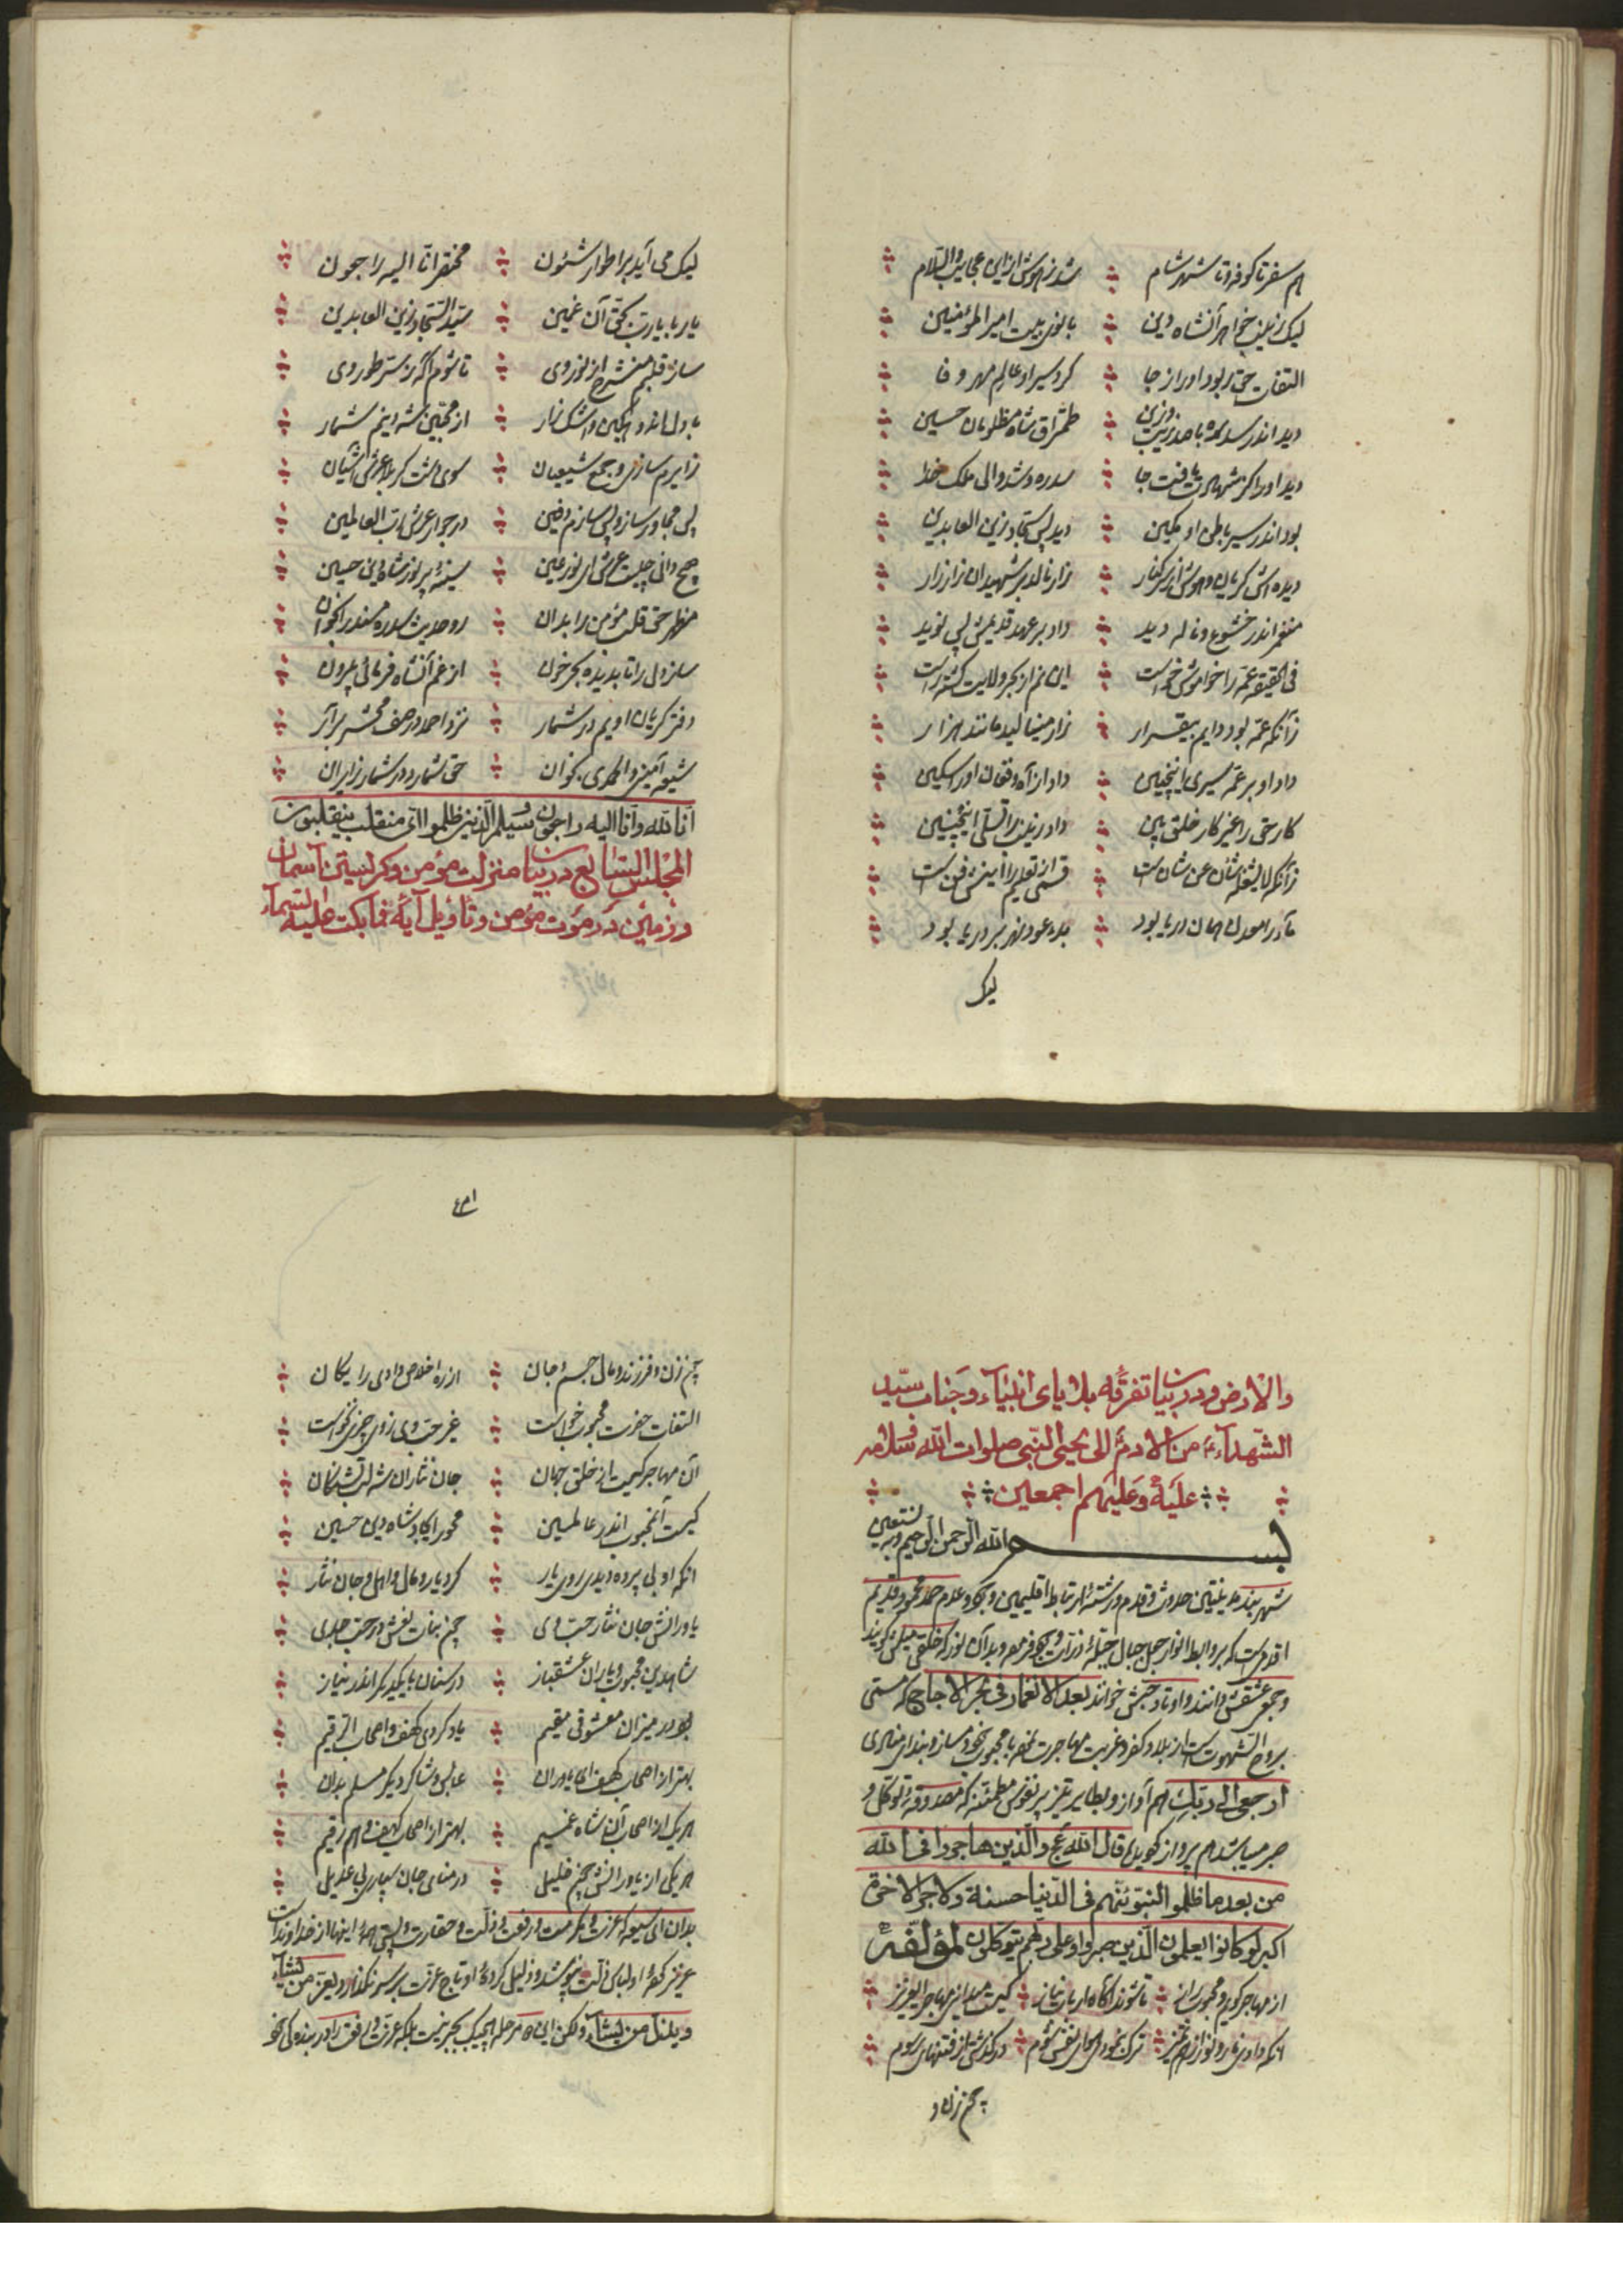 هم سفر تا کوفه و تا شهر شام شد ز هوش از این عجایب والسلام
لیک زینب خواهر آنشاه دین بانوی بیت امیرالمؤمنین
التفات حق ربود او را ز جا کرد سیر او عالم مهر و فا
دید اندر سدره با صد زیب وزین طمطراق شاه مظلومان حسین
دید او را کز شهادت یافت جا سدره شد والی ملک خدا
بود اندر سیر باطن او مکین دید پس سجاد زین العابدین
دیده اش گریان و هوش اندر کنار زار نالد بر شهیدان زار زار
عمه اندر خشوع و ناله دید داد بر عهد قدیمش پس نوید
فی الحقیقه عمه را خواموشی خواست این نم از بحر ولایت گشته راست
زآنکه عمه بود دایم بیقرار زار مینالید مانند هزار
داد او بر عمه سیری اینچنین داد از آه و فغان او را سکین
کار حق را غیر کار خلق بین داد زینب را تسلی اینچنین
زآنکه لا یشغله شأن عن شان است قسمی از تعلیم را این فن است
مآء را معدن همان دریا بود بدء و عود نهر بر دریا بود
لیک
لیک می آید بر اطوار شئون مختصر انا الیه راجعون
یار با یارت بحق آن غمین سید السجاد زین العابدین
ساز قلبم منشرح از نور وی تا شوم آگه ز ستر طور وی
با دل اندوهگین و اشکبار از محبین شه دینم شمار
زایرم سازی و جمع شیعیان سوی دشت کربلا عرش آشیان
پس مجاور ساز و پس سازم دفین در جوار عرش رب العالمین
هیچ دانی چیست عرش ای نور عین سینه پر نور شاه دین حسین
منظر حق قلب مؤمن را بدان رو حدیث سدره مسند را بخوان
ساز دل را تا بدیده بحر خون از غم آنشاه فرمائی برون
دفتر گریان اویم در شمار نزد احمد در صف محشر بر آر
شیعه آمین و الحمدی بخوان حق شمارد در شمار زایران
انا لله وانا الیه راجعون و سیعلم الذین ظلموا ای منقلب ینقلبون
المجلس السابع در بیان منزلت مؤمن و گریستن آسمان
و زمین در موت مؤمن و تأویل آیه فما بکت علیه السمآء
والارض و در بیان تفرقه بلایای انبیآء و جناب سید
الشهدآء من الادم الی یحیی النبی صلوات الله و سلامه
علیه و علیهم اجمعین
بسم الله الرحمن الرحیم و به نستعین
شهربند مدینتین حدوث و قدم و رشته ارتباط اقلیمین وجود و عدم حمد محمود قدیم
و جمع عشقش دانند و اوتاد جبش خوانند بعد الانغمار فی بحر الاجاج که مستی
ارجعی الی ربک هم آواز و بطایر تیز پر نفوس مطمئنه که مصدوقه توکل و
صبر میباشند هم پرواز گویند قال الله عج والذین هاجروا فی الله
من بعد ما ظلموا لنبوئنهم فی الدنیا حسنة ولاجر الاخرة
اکبر لو کانوا یعلمون الذین صبروا وعلی ربهم یتوکلون لمؤلفه
از مهاجر گوید و محبوب راز تا شوند آگاه ارباب نیاز کیست میدانی مهاجر ای عزیز
ترک خود ای نفس شوم درگذشتی از فتنهای رسوم
چون زن و
۴۱
چون زن و فرزند و مال جسم و جان از ره اخلاص دادی رایگان
التفات حضرت محبوب خواست غیر حب وی ز وی چیزی نخواست
آن مهاجر کیست از خلق جهان جان نثاران شه لب تشنگان
کیست آنمحبوب اندر عالمین محور ایجاد شاه دین حسین
آنکه او بی پرده دیدی روی یار کرد یار و مال و اهل و جان نثار
یاورانش جان نثار حب وی چون بنات نعش در حب جدی
شاهد دین محبوب و یاران عشقباز در سنان با یکدیگر اندر نیاز
بود در میزان معشوقی مقیم یاد کردی کهف و اصحاب الرقیم
بهتر از اصحاب کهف ای یاوران عابس و شاکر دیگر مسلم بدان
هر یک از اصحاب آن شاه غمیم بهتر از اصحاب کهف و هم رقیم
هر یکی از یاورانش چون خلیل در منای جان سپاری بی عدیل
بدان ای شیعه که عزت و مکرمت و رفعت و ذلت و حقارت و پستی همه اینها از خداوند است
عزیز کرده او لباس ذلت نپوشد و ذلیل کرده او تاج عزت بر سر نگذارد و یعز من یشآء
و یذل من یشآء ولکن این مرحله هیچیک بجبر نیست بلکه عزت و رفعت را در بندگی خود